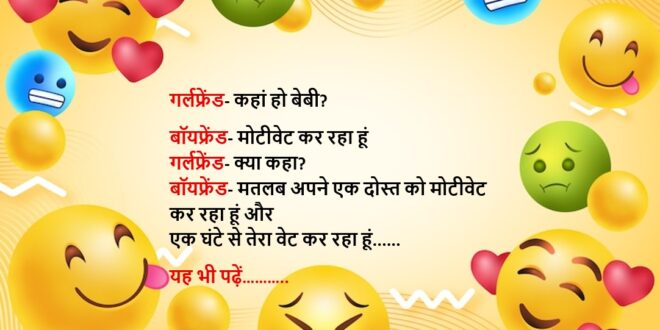 गर्लफ्रेंड- कहां हो बेबी?
बॉयफ्रेंड- मोटीवेट कर रहा हूं
गर्लफ्रेंड- क्या कहा?
बॉयफ्रेंड- मतलब अपने एक दोस्त को मोटीवेट
कर रहा हूं और
एक घंटे से तेरा वेट कर रहा हूं......
यह भी पढ़ें...........